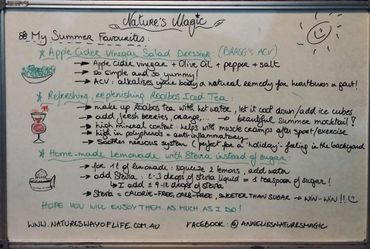 Nature's Magic
My Summer Favourites:
* Apple Cider Vinegar Salad Dressing: (BRAGG'S ACV)
→ Apple Cider Vinegar + Olive Oil + pepper + salt
→ so simple and so yummy!
→ ACV: alkalises your body & natural remedy for heartburn & gout!
* Refreshing, replenishing Rooibos Iced Tea
→ make up Rooibos tea with hot water, let it cool down / add ice cubes
→ add fresh berries, orange, ... → beautiful summer mocktail!
→ high mineral content: helps with muscle cramps after sport/exercise
→ high in polyphenols = anti-inflammatory
→ Soothes nervous system (perfect for a 'holiday' feeling in the backyard
* Home-made Lemonade with Stevia instead of sugar
→ for 1 l of lemonade: squeeze 2 lemons, add water
→ add Stevia: 2-3 drops of stevia liquid = 1 teaspoon of sugar!
→ Stevia = CALORIE-FREE, CARB-FREE, SWEETER THAN SUGAR → WIN-WIN!!
HOPE YOU WILL ENJOY THEM AS MUCH AS I DO!
WWW.NATURESWAYOFLIFE.COM.AU FACEBOOK: @ANNELIESNATURESMAGIC